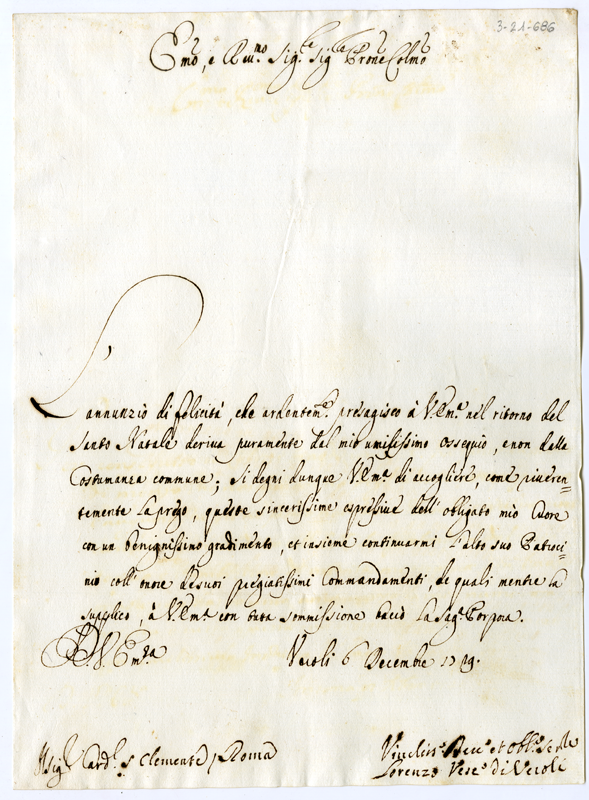 3-21-686
Emo, e Revmo Sigre Sigre Prone Colmo
L'annunzio di felicità, che ardentemte presagisco à V. Emza nel ritorno del
Santo Natale deriva puramente dal mio umilissimo ossequio, e non dalla
Costumanza commune; Si degni dunque V. Emza di accogliere, come riveren=
temente La prego, queste sincerissime espressive dell'obligato mio Cuore
con un benignissimo gradimento, et insieme continuarmi l'alto suo Patroci=
nio coll'onore de suoi pregiatissimi Commandamenti, de quali mentre la
supplico, à V. Emza con tutta sommissione bacio La Saga Porpora.
D. V. Emza Veroli 6 Decembre 1729.
Sigr Cardl S Clemente / Roma
Umiliso Devo et Obligo Serre
Lorenzo Vesco di Veroli